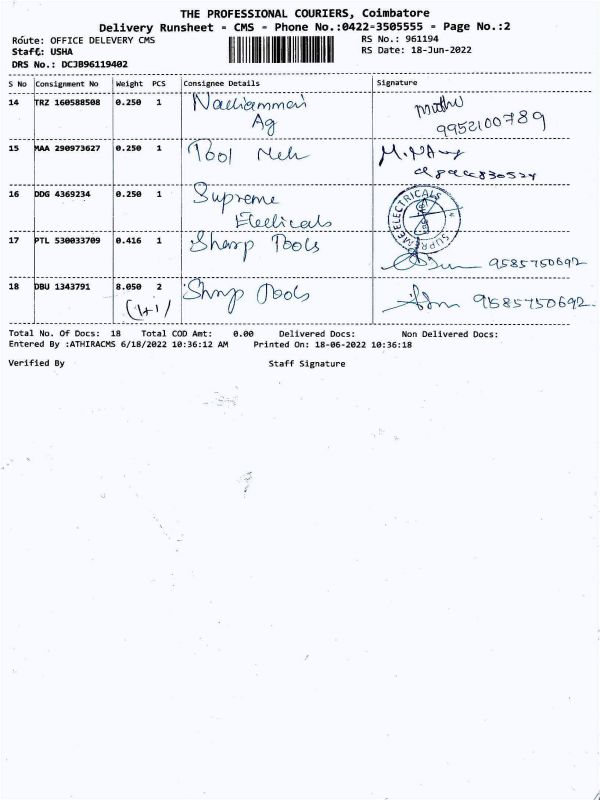 THE PROFESSIONAL COURIERS, Coimbatore
Delivery Runsheet - CMS - Phone No.:0422-3505555 - Page No.:2
Route: OFFICE DELEVERY CMS
RS No.: 961194
Staff: USHA
RS Date: 18-Jun-2022
DRS No.: DCJB96119402
S No Consignment No Weight PCS Consignee Details Signature
14 TRZ 160588508 0.250 1 Nachiammai muthu
Ag 9952100789
15 MAA 290973627 0.250 1 Pool
16 DDG 4369234 0.250 1 Supreme SUPREME ELECTRICALS
Electicals
17 PTL 530033709 0.416 1 Sharp Tools 9585750692
18 DBU 1343791 8.050 2 Sharp Tools 9585750692.
(1+1)
Total No. Of Docs: 18 Total COD Amt: 0.00 Delivered Docs: Non Delivered Docs:
Entered By :ATHIRACMS 6/18/2022 10:36:12 AM Printed On: 18-06-2022 10:36:18
Verified By Staff Signature